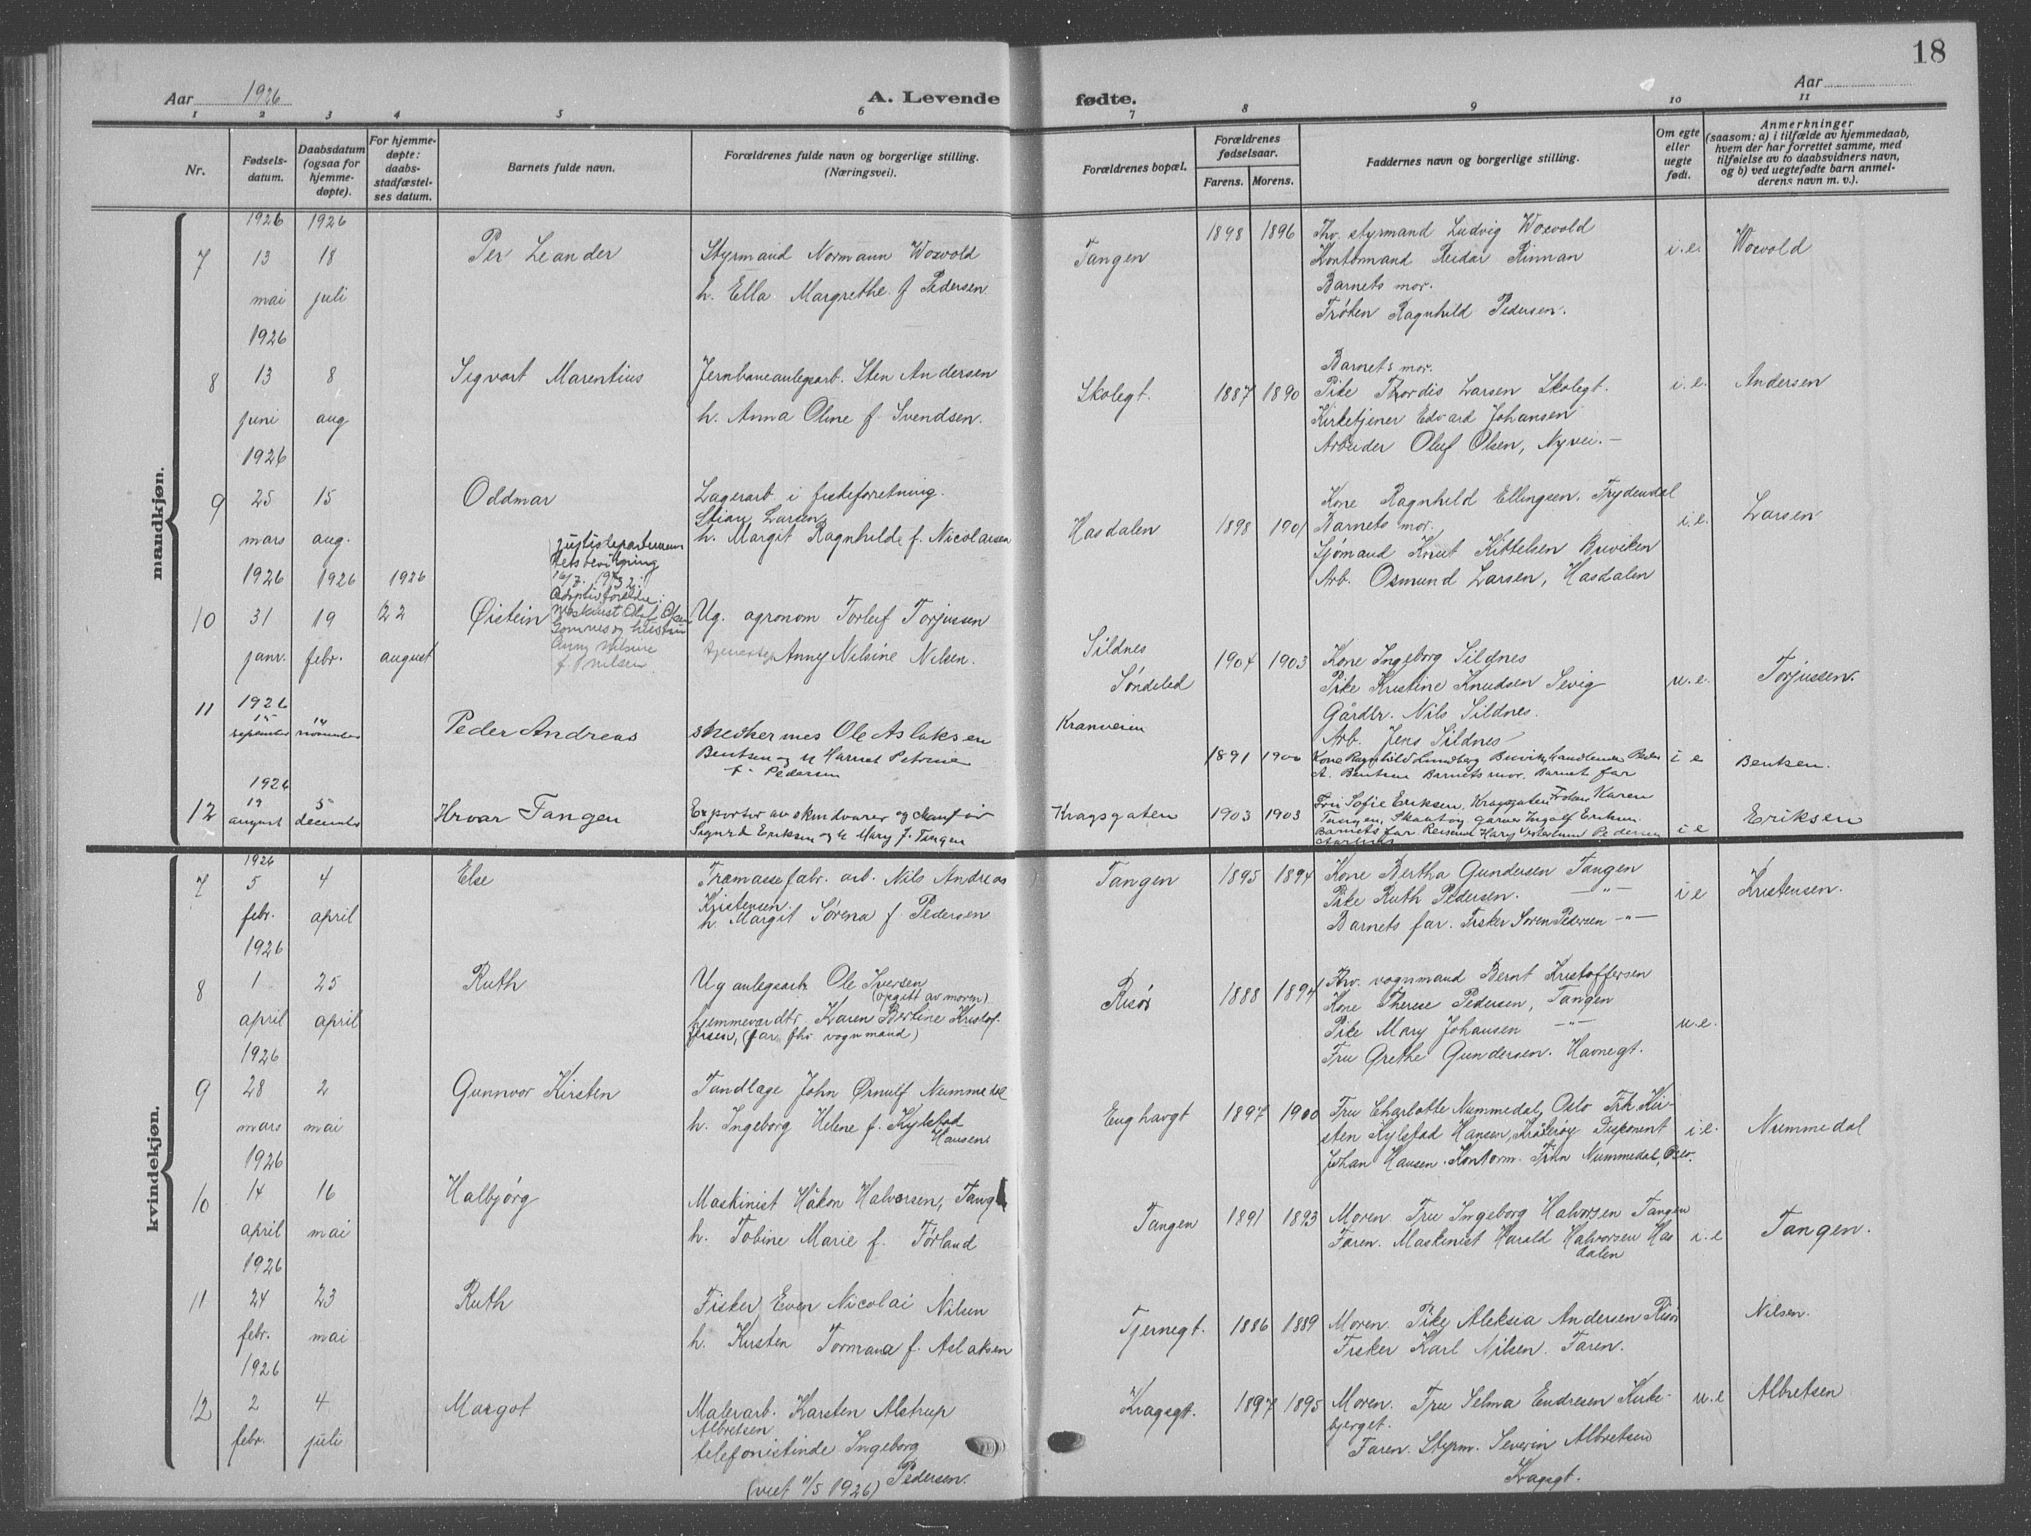 18
Aar 1926
A. Levende fødte.
Aar
1 2 3 4 5 6 7 8 9 10 11
Nr.
Fødsels-
datum.
Daabsdatum
(ogsaa for
hjemme-
døpte).
For hjemme-
døpte:
daabs-
stadfæstel-
ses datum.
Barnets fulde navn.
Forældrenes fulde navn og borgerlige stilling.
(Næringsvei).
Forældrenes bopæl.
Forældrenes
fødselsaar.
Farens. Morens.
Faddernes navn og borgerlige stilling.
Om egte
eller
uegte
født.
Anmerkninger
(saasom: a) i tilfælde av hjemmedaab,
hvem der har forrettet samme, med
tilføielse av to daabsvidners navn,
og b) ved uegtefødte barn anmel-
derens navn m. v.).
mandkjøn.
1926 1926
7 13 18 Per Leander
mai juli
Styrmand Normann Woxvold
h. Ella Margrethe f Pedersen
Tangen 1898 1896
Fhv. styrmand Ludvig Woxvold
Kontormand Reidar Rinnan
Barnets mor.
Frøken Ragnhild Pedersen.
i.e. Woxvold
1926
8 13 8 Sigvart Marentius
juni aug
Jernbaneanlegsarb. Sten Andersen
h. Anna Oline f. Svendsen.
Skolegt. 1887 1890
Barnets mor.
Pike Thordis Larsen Skolegt.
Kirketjener Edvard Johansen
Arbeider Oluf Olsen, Nyvei. –
i.e. Andersen
1926
9 25 15 Oddmar
mars aug.
Lagerarb. i fiskeforretning.
Stian Larsen
h. Margit Ragnhilde f. Nicolaisen
Hasdalen 1898 1901
Kone Ragnhild Ellingsen. Frydendal
Barnets mor.
Sjømand Knut Kittelsen Buviken
Arb. Osmund Larsen, Hasdalen
i.e. Larsen
1926 1926 1926
10 31 19 22 Øistein
janr. febr. august
Adoptivforeldre:
Anny Nilsine
f. Nilsen
Ug. agronom Torleif Torjussen
Anny Nilsine Nilsen.
Sildnes
Søndeled
1904 1903
Kone Ingeborg Sildnes
Pike Kristine Knudsen Sevig
Gårdbr. Nils Sildnes.
Arb. Jens Sildnes
u.e. Torjussen.
1926
11 15 14
september november
Peder Andreas
snekkermes Ole Aslaksen
Bentsen og h Harriet Petrine
f. Pedersen
Kranveien
1891 1900
Kone Ragnhild Lundberg Buvik, handlende Peder
A. Bentsen Barnets mor. Barnets far
i e Bentsen.
1926
12 19 5
august december
Hroar Tangen
Exportør av skindvarer og
Sigurd Eriksen og h Mary f. Tangen
Kragsgaten 1903 1903
Fru Sofie Eriksen. Kragsgaten Frøken Karen
Tangen,
Barnets far
i e Eriksen
kvindekjøn.
1926
7 5 4 Else
febr. april
Træmassefabr. arb. Nils Andreas
Kristensen.
h. Margit Sørena f. Pedersen
Tangen 1895 1894
Kone Bertha Gundersen Tangen
Pike Ruth Pedersen. – " –
Barnets far. Fisker Søren Pedersen – " –
i e Kristensen.
1926
8 1 25 Ruth
april april
Ug anlegsarb. Ole Iversen
(opgitt av moren)
hjemmev. dtr. Karen Bertine Kristof-
fersen, (far fhv vognmand)
Risør 1888 1894
Fhv. vognmand Bernt Kristoffersen
Kone Therese Pedersen, Tangen
Pike Mary Johansen – " –
Fru Grethe Gundersen. Havnegt.
u.e.
1926
9 28 2 Gunnvor Kirsten
mars mai
Tandlæge John Ørnulf Nummedal
h. Ingeborg Helene f. Kylstad
Hansen
Enghavgt 1897 1900
Fru Charlotte Nummedal, Oslo Frk. Kir-
sten Kylstad Hansen, Kragerøy Disponent
Johan Hansen. Kontorm. Finn Nummedal, Oslo.
i.e. Nummedal
1926
10 14 16 Halbjørg
april mai
Maskinist Håkon Halvorsen, Tang
h. Tobine Marie f. Førland
Tangen 1891 1893
Moren Fru Ingeborg Halvorsen Tangen
Faren. Maskinist Harald Halvorsen Has
dalen
i.e Tangen.
1926
11 24 23 Ruth
febr. mai
Fisker Even Nicolai Nilsen
h. Kirsten Tormana f. Aslaksen
Tjernegt. 1886 1889
Moren. Pike Aleksia Andersen Risør
Fisker Karl Nilsen. Faren.
Nilsen.
1926
12 2 4 Margot
febr. juli
Malerarb. Karsten Alstrup
Albretsen
telefonistinde Ingeborg
Pedersen.
(viet 11/5 1926)
Kragsgt. 1897 1895
Moren. Fru Selma Endresen Kirke-
bjerget.
Faren. Styrm. Severin Albretsen
Kragsgt.
u.e Albretsen